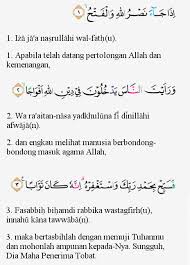 إِذَا جَاۤءَ نَصْرُ اللّٰهِ وَالْفَتْحُۙ ١
1. Iżā jā'a naṣrullāhi wal-fatḥ(u).
1. Apabila telah datang pertolongan Allah dan
kemenangan,
وَرَاَيْتَ النَّاسَ يَدْخُلُوْنَ فِيْ دِيْنِ اللّٰهِ اَفْوَاجًاۙ ٢
2. Wa ra'aitan-nāsa yadkhulūna fī dīnillāhi
afwājā(n).
2. dan engkau melihat manusia berbondong-
bondong masuk agama Allah,
فَسَبِّحْ بِحَمْدِ رَبِّكَ وَاسْتَغْفِرْهُۗ اِنَّهٗ كَانَ تَوَّابًا ٣
3. Fasabbiḥ biḥamdi rabbika wastagfirh(u),
innahū kāna tawwābā(n).
3. maka bertasbihlah dengan memuji Tuhanmu
dan mohonlah ampunan kepada-Nya. Sungguh,
Dia Maha Penerima Tobat.